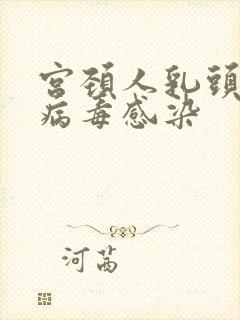 宫颈人乳頭
病毒感染
河茜